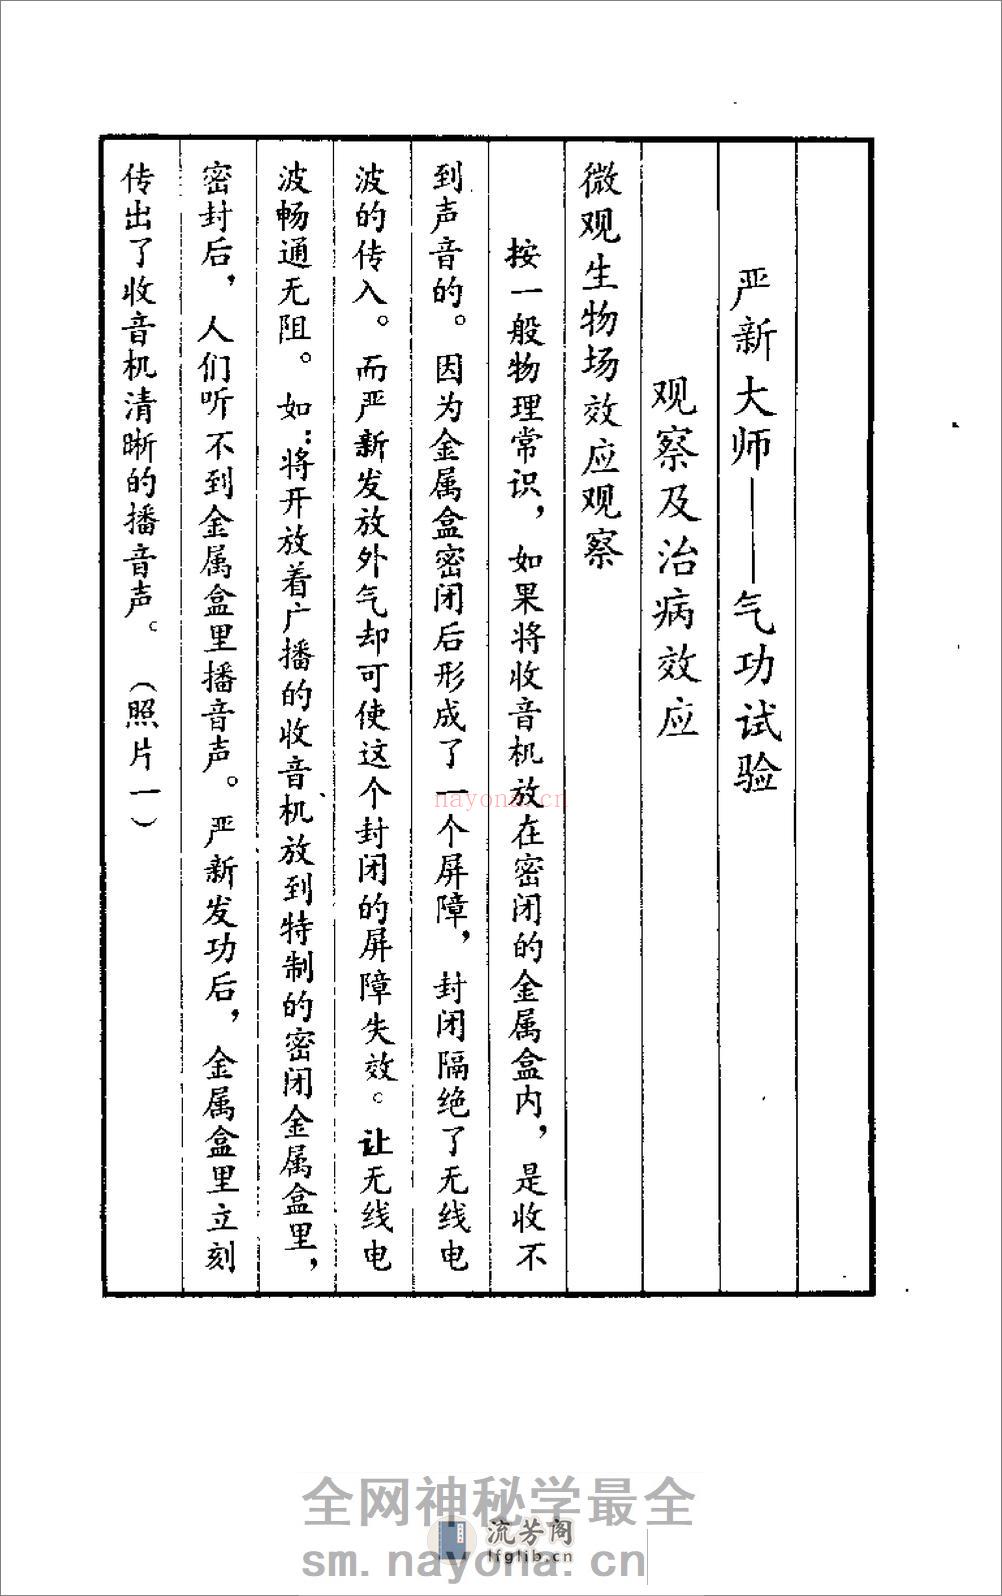 严新大师——气功试验
观察及治病效应
微观生物场效应观察
按一般物理常识，如果将收音机放在密闭的金属盒内，是收不
到声音的。因为金属盒密闭后形成了一个屏障，封闭隔绝了无线电
波的传入。而严新发放外气却可使这个封闭的屏障失效。让无线电
波畅通无阻。如：将开放着广播的收音机放到特制的密闭金属盒里，
密封后，人们听不到金属盒里播音声。严新发功后，金属盒里立刻
传出了收音机清晰的播音声。（照片一）
nayona.cn
全网神秘学最全
流芳阁
lfglib.cn
sm.nayona.cn